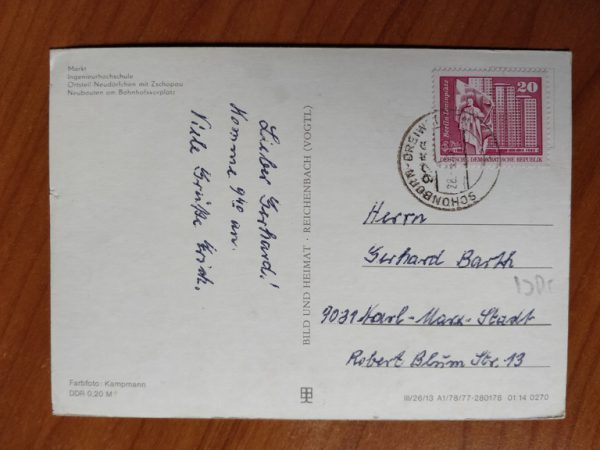 Markt
Ingenieurhochschule
Ortsteil Neudörfchen mit Zschopau
Neubauten am Bahnhofsvorplatz
Lieber Gerhard!
Komme 9⁴⁰ an.
Viele Grüße Erich.
Farbfoto: Kampmann
DDR 0,20 M
BILD UND HEIMAT · REICHENBACH (VOGTL)
20
Berlin, Leninplatz
DEUTSCHE DEMOKRATISCHE REPUBLIK
SCHÖNBORN-DREIW
Herrn
Gerhard Barth
9031 Karl-Marx-Stadt
Robert Blum Str. 13
III/26/13 A1/78/77-280178 01 14 0270